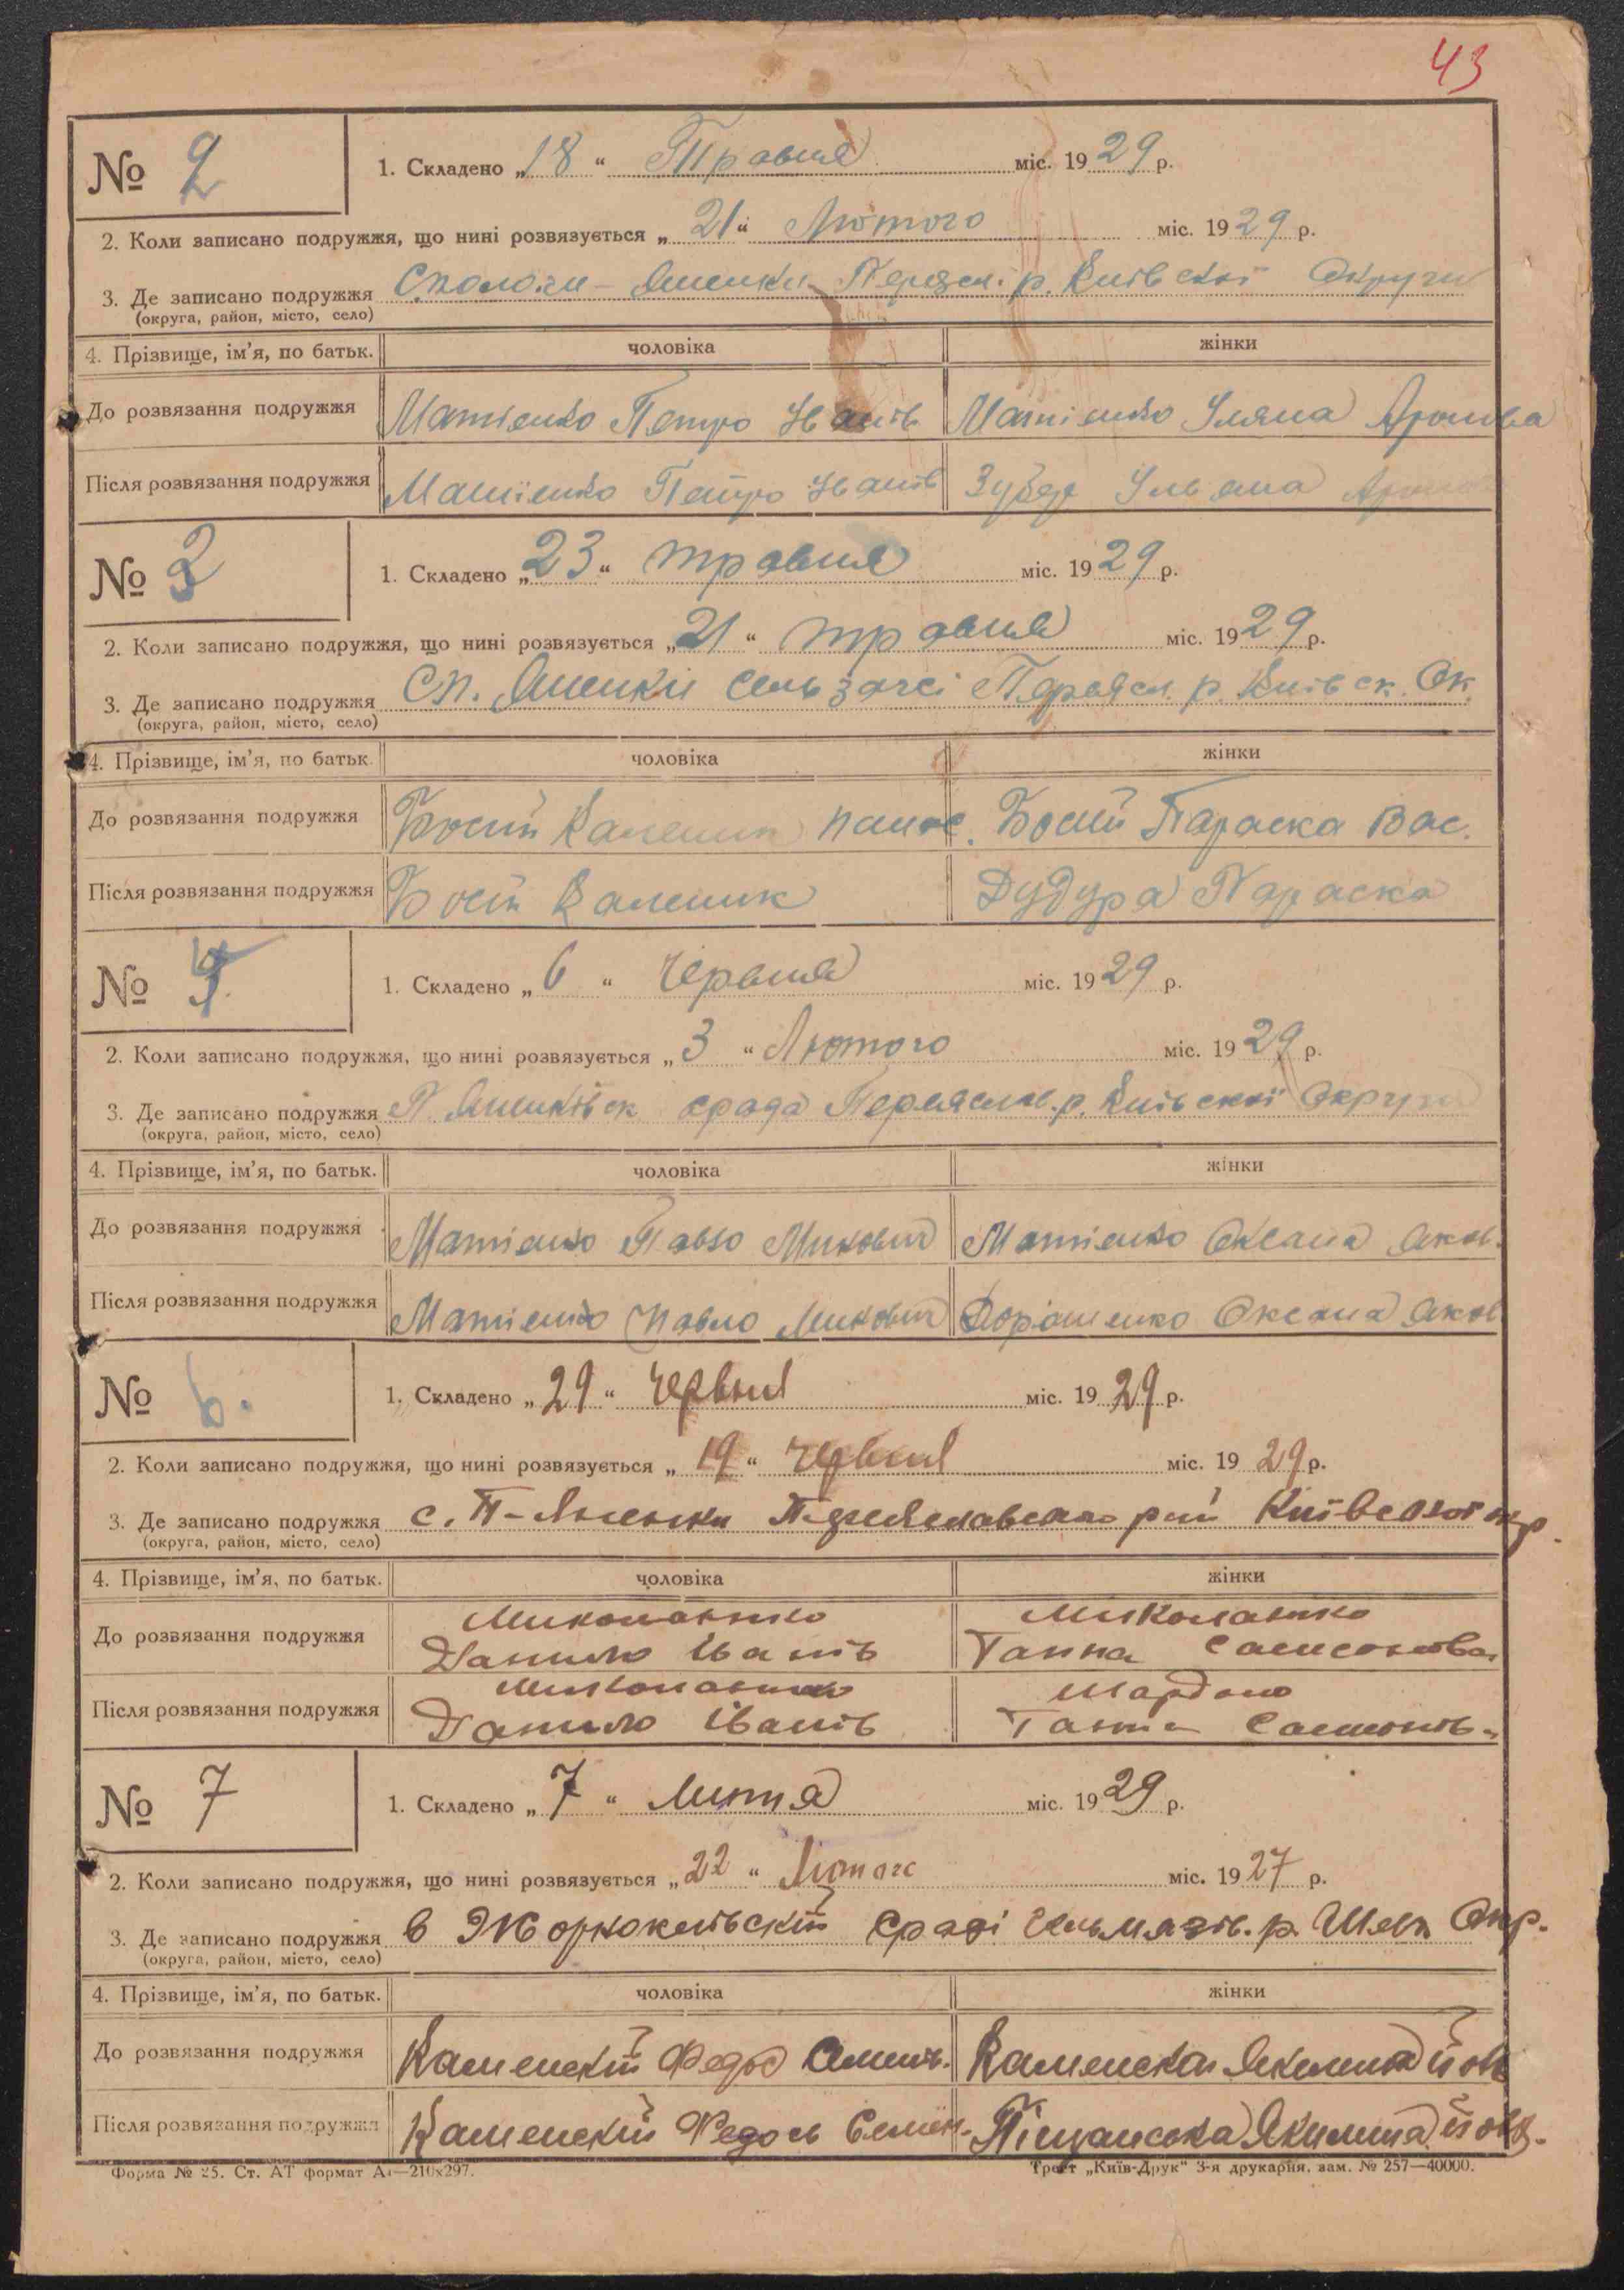 43
№ 2
1. Складено „18“ Травня міс. 1929 р.
2. Коли записано подружжя, що нині розвязується „21“ Лютого міс. 1929 р.
3. Де записано подружжя р. Київської Округи
(округа, район, місто, село)
4. Прізвище, ім’я, по батьк. чоловіка жінки
До розвязання подружжя Матіенко Петро Іванів Матіенко Уляна
Після розвязання подружжя Матіенко Петро Іванів Ульяна
№ 3
1. Складено „23“ травня міс. 1929 р.
2. Коли записано подружжя, що нині розвязується „21“ травня міс. 1929 р.
3. Де записано подружжя Сп. Яшники Переясл. р. Київск. Ок.
(округа, район, місто, село)
4. Прізвище, ім’я, по батьк. чоловіка жінки
До розвязання подружжя Босий Параска Вас.
Після розвязання подружжя Каленик Дудура Параска
№
1. Складено „6“ Червня міс. 1929 р.
2. Коли записано подружжя, що нині розвязується „3“ Лютого міс. 1929 р.
3. Де записано подружжя срада р. Київскої Округи
(округа, район, місто, село)
4. Прізвище, ім’я, по батьк. чоловіка жінки
До розвязання подружжя Матіенко Павло Матіенко Оксана Яков.
Після розвязання подружжя Матіенко Павло Дорошенко Оксана Яков.
№ 6.
1. Складено „29“ червня міс. 1929 р.
2. Коли записано подружжя, що нині розвязується „19“ червня міс. 1929 р.
3. Де записано подружжя с. П- рай Київської окр.
(округа, район, місто, село)
4. Прізвище, ім’я, по батьк. чоловіка жінки
До розвязання подружжя Миколаенко Данило Іванів Миколаенко Ганна Самсонова
Після розвязання подружжя Миколаенко Данило Іванів Ганна
№ 7
1. Складено „7“ Липня міс. 1929 р.
2. Коли записано подружжя, що нині розвязується „22“ Лютого міс. 1927 р.
3. Де записано подружжя в сраді р. Шевч. Окр.
(округа, район, місто, село)
4. Прізвище, ім’я, по батьк. чоловіка жінки
До розвязання подружжя Каменский Федос Каменская Якилина
Після розвязання подружжя Каменский Федось Семен. Піщанська Якилина
Форма № 25. Ст. АТ формат А₄—210х297.
Трест „Київ-Друк“ 3-я друкарня. зам. № 257—40000.